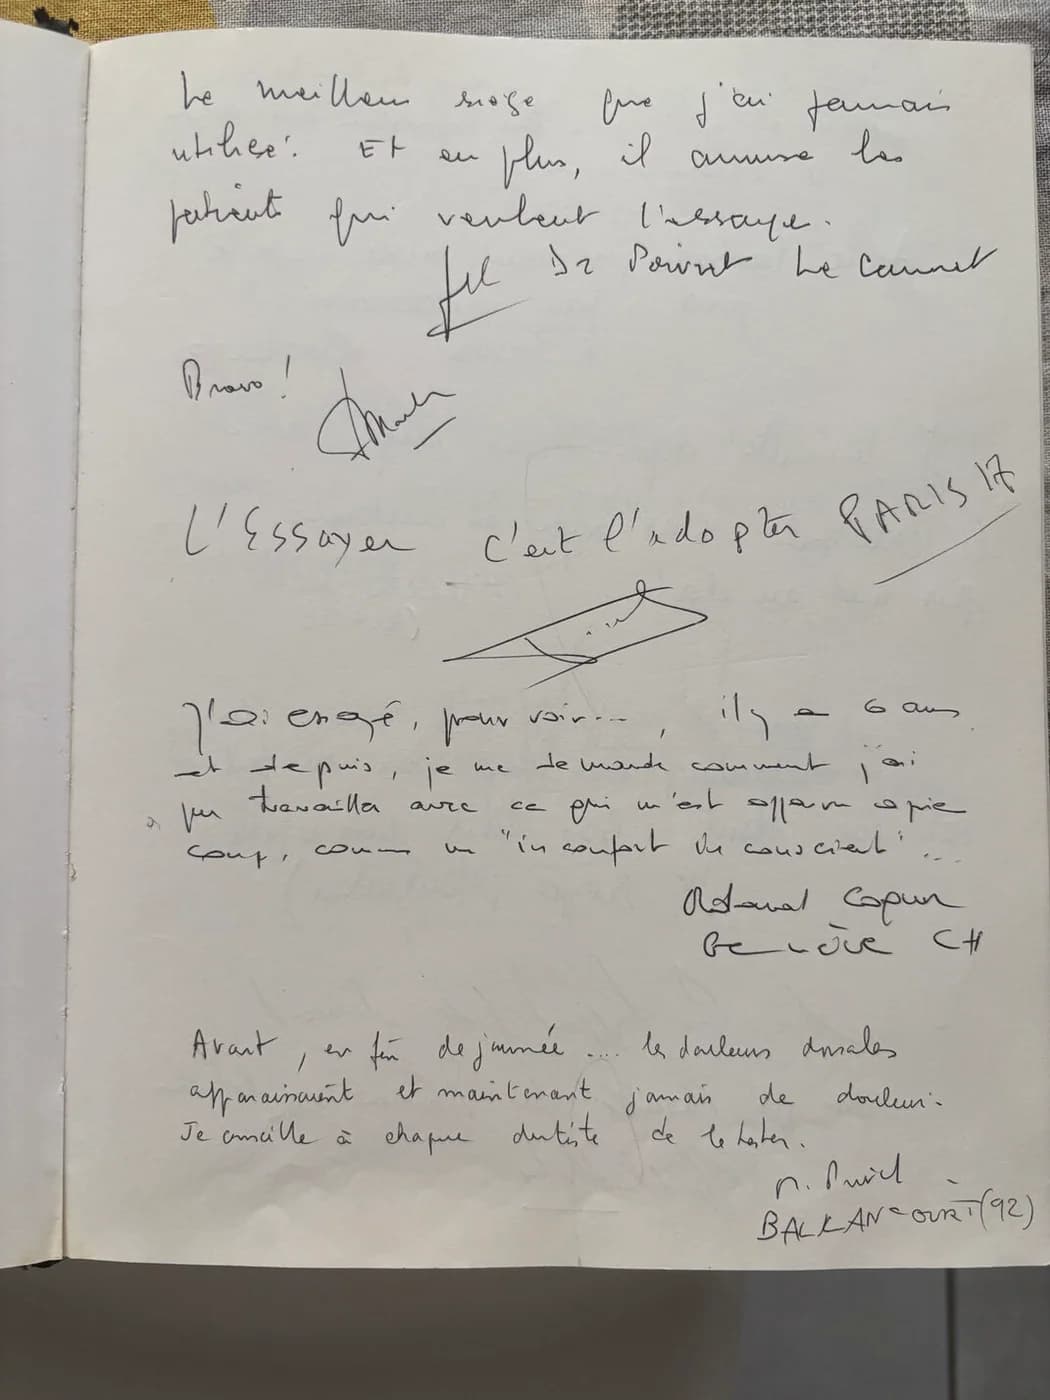 Le meilleur siège que j'ai jamais
utilisé. Et en plus, il amuse les
patients qui veulent l'essayer.
Dr Le Cannet
Bravo!
L'Essayer c'est l'adopter PARIS 17
J'ai essayé, pour voir..., il y a 6 ans
et depuis, je me demande comment j'ai
pu travailler avec ce qui m'est apparu après
coup, comme un "inconfort inconscient"...
Genève CH
Avant, en fin de journée.... les douleurs dorsales
apparaissaient et maintenant jamais de douleur.
Je conseille à chaque dentiste de le tester.
(92)